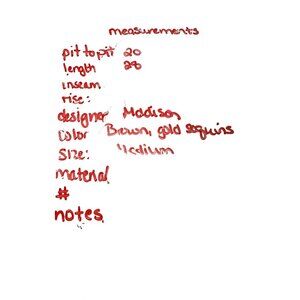 measurements
pit to pit 20
length 28
inseam
rise:
designer Madison
color Brown, gold sequins
Size: Medium
material
#
notes